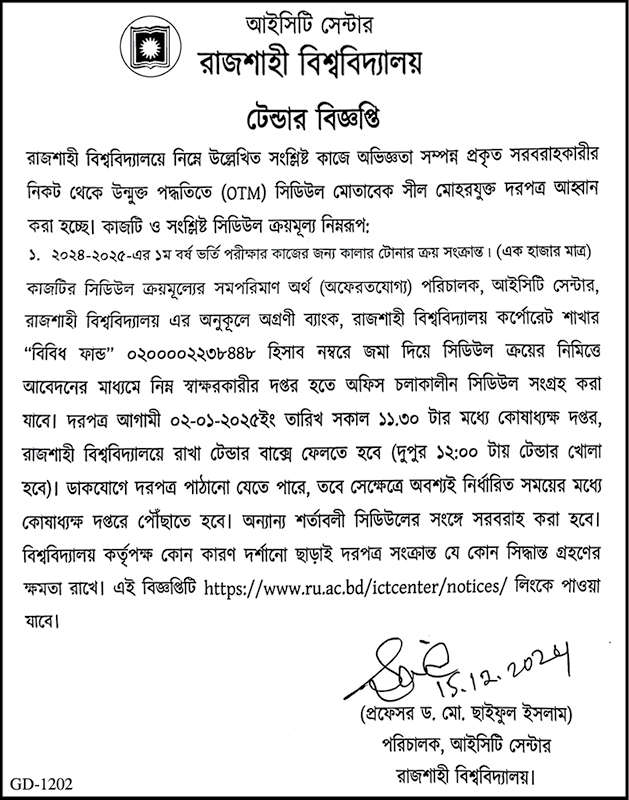 আইসিটি সেন্টার
রাজশাহী বিশ্ববিদ্যালয়
টেন্ডার বিজ্ঞপ্তি
রাজশাহী বিশ্ববিদ্যালয়ে নিম্নে উল্লেখিত সংশ্লিষ্ট কাজে অভিজ্ঞতা সম্পন্ন প্রকৃত সরবরাহকারীর
নিকট থেকে উন্মুক্ত পদ্ধতিতে (OTM) সিডিউল মোতাবেক সীল মোহরযুক্ত দরপত্র আহ্বান
করা হচ্ছে। কাজটি ও সংশ্লিষ্ট সিডিউল ক্রয়মূল্য নিম্নরূপ:
১. ২০২৪-২০২৫-এর ১ম বর্ষ ভর্তি পরীক্ষার কাজের জন্য কালার টোনার ক্রয় সংক্রান্ত। (এক হাজার মাত্র)
কাজটির সিডিউল ক্রয়মূল্যের সমপরিমাণ অর্থ (অফেরতযোগ্য) পরিচালক, আইসিটি সেন্টার,
রাজশাহী বিশ্ববিদ্যালয় এর অনুকূলে অগ্রণী ব্যাংক, রাজশাহী বিশ্ববিদ্যালয় কর্পোরেট শাখার
“বিবিধ ফান্ড” ০২০০০০২২৩৮৪৪৮ হিসাব নম্বরে জমা দিয়ে সিডিউল ক্রয়ের নিমিত্তে
আবেদনের মাধ্যমে নিম্ন স্বাক্ষরকারীর দপ্তর হতে অফিস চলাকালীন সিডিউল সংগ্রহ করা
যাবে। দরপত্র আগামী ০২-০১-২০২৫ইং তারিখ সকাল ১১.৩০ টার মধ্যে কোষাধ্যক্ষ দপ্তর,
রাজশাহী বিশ্ববিদ্যালয়ে রাখা টেন্ডার বাক্সে ফেলতে হবে (দুপুর ১২:০০ টায় টেন্ডার খোলা
হবে)। ডাকযোগে দরপত্র পাঠানো যেতে পারে, তবে সেক্ষেত্রে অবশ্যই নির্ধারিত সময়ের মধ্যে
কোষাধ্যক্ষ দপ্তরে পৌঁছাতে হবে। অন্যান্য শর্তাবলী সিডিউলের সংঙ্গে সরবরাহ করা হবে।
বিশ্ববিদ্যালয় কর্তৃপক্ষ কোন কারণ দর্শানো ছাড়াই দরপত্র সংক্রান্ত যে কোন সিদ্ধান্ত গ্রহণের
ক্ষমতা রাখে। এই বিজ্ঞপ্তিটি https://www.ru.ac.bd/ictcenter/notices/ লিংকে পাওয়া
যাবে।
15.12.2024
(প্রফেসর ড. মো. ছাইফুল ইসলাম)
পরিচালক, আইসিটি সেন্টার
রাজশাহী বিশ্ববিদ্যালয়।
GD-1202